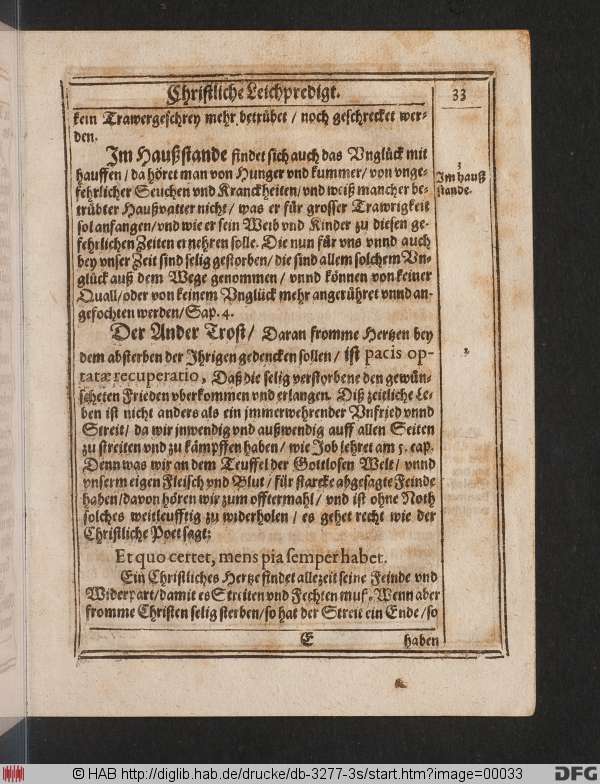 Christliche Leichpredigt.
33
kein Trawergeschrey mehr betrübet / noch geschrecket wer-
den.
Im Haußstande findet sich auch das Vnglück mit
hauffen / da höret man von Hunger vnd kummer / von vnge-
fehrlicher Seuchen vnd Kranckheiten / vnd weiß mancher be-
trübter Haußvatter nicht / was er für grosser Trawrigkeit
sol anfangen / vnd wie er sein Weib vnd Kinder zu diesen ge-
fehrlichen Zeiten ernehren solle. Die nun für vns vnnd auch
bey vnser Zeit sind selig gestorben / die sind allem solchem Vn-
glück auß dem Wege genommen / vnnd können von keiner
Quall / oder von keinem Vnglück mehr angerühret vnnd an-
gefochten werden / Sap. 4.
3
Im hauß
stande.
Der Ander Trost / Daran fromme Hertzen bey
dem absterben der Ihrigen gedencken sollen / ist pacis op-
tatæ recuperatio, Daß die selig verstorbene den gewün-
scheten Frieden vberkommen vnd erlangen. Diß zeitliche Le-
ben ist nicht anders als ein jmmerwehrender Vnfried vnnd
Streit / da wir jnwendig vnd außwendig auff allen Seiten
zu streiten vnd zu kämpffen haben / wie Job lehret am 5. cap.
Denn was wir an dem Teuffel der Gottlosen Welt / vnnd
vnserm eigen Fleisch vnd Blut / für starcke abgesagte Feinde
haben / davon hören wir zum offtermahl / vnd ist ohne Noth
solches weitleufftig zu widerholen / es gehet recht wie der
Christliche Poet sagt:
Et quo certet, mens pia semper habet.
Ein Christliches Hertze findet allezeit seine Feinde vnd
Widerpart / damit es Streiten vnd Fechten muß. Wenn aber
fromme Christen selig sterben / so hat der Streit ein Ende / so
E
haben
© HAB http://diglib.hab.de/drucke/db-3277-3s/start.htm?image=00033
DFG